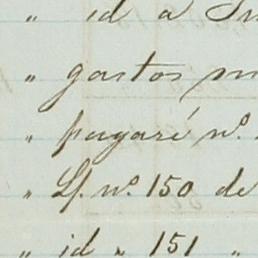 " id a
" gastos
" pagaré nº.
" Lf. nº. 150 de
" id " 151 "